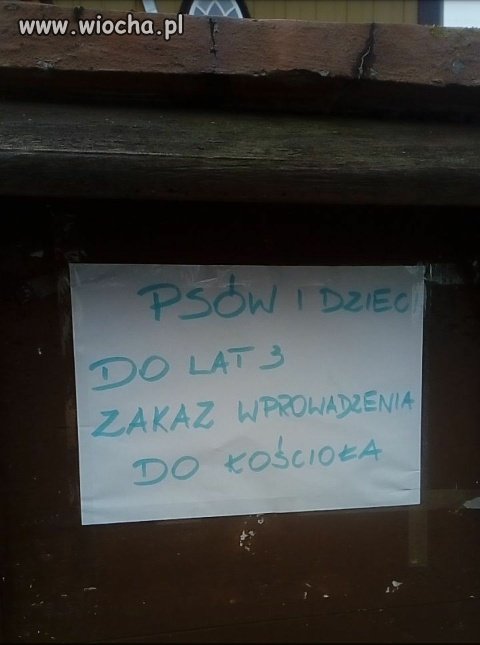 www.wiocha.pl
PSÓW I DZIEC
DO LAT 3
ZAKAZ WPROWADZENIA
DO KOŚCIOŁA